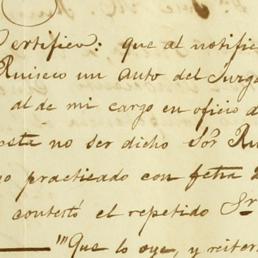 Certifico: que al notific
Ruiseco un auto del Juzga
al de mi cargo en oficio d
esta no ser dicho Sor Ru
o practicado con fecha
contestó el repetido Sr
"Que lo oye, y reiter